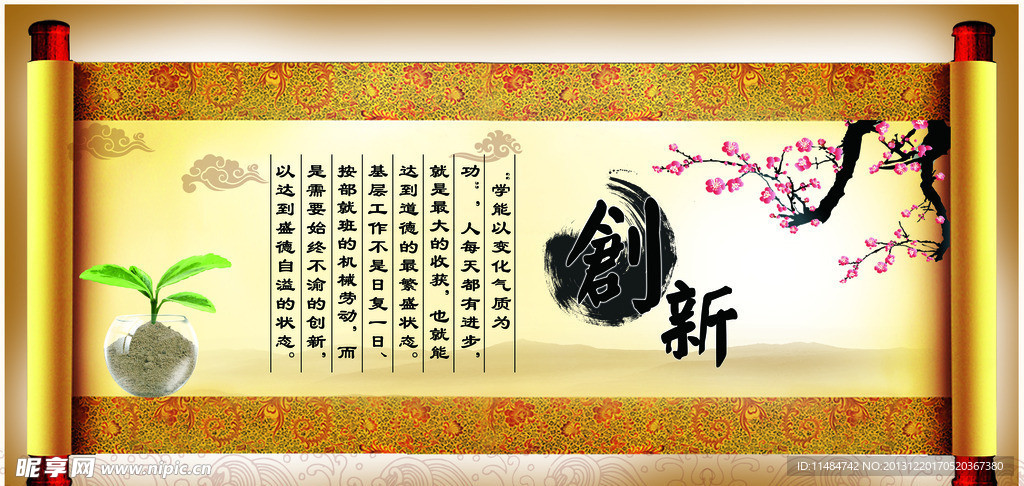 創
新
“学能以变化气质为
功”，人每天都有进步，
就是最大的收获，也就能
达到道德的最繁盛状态。
基层工作不是日复一日、
按部就班的机械劳动，而
是需要始终不渝的创新，
以达到盛德自溢的状态。
昵享网 www.nipic.cn
ID:11484742 NO:20131220170520367380